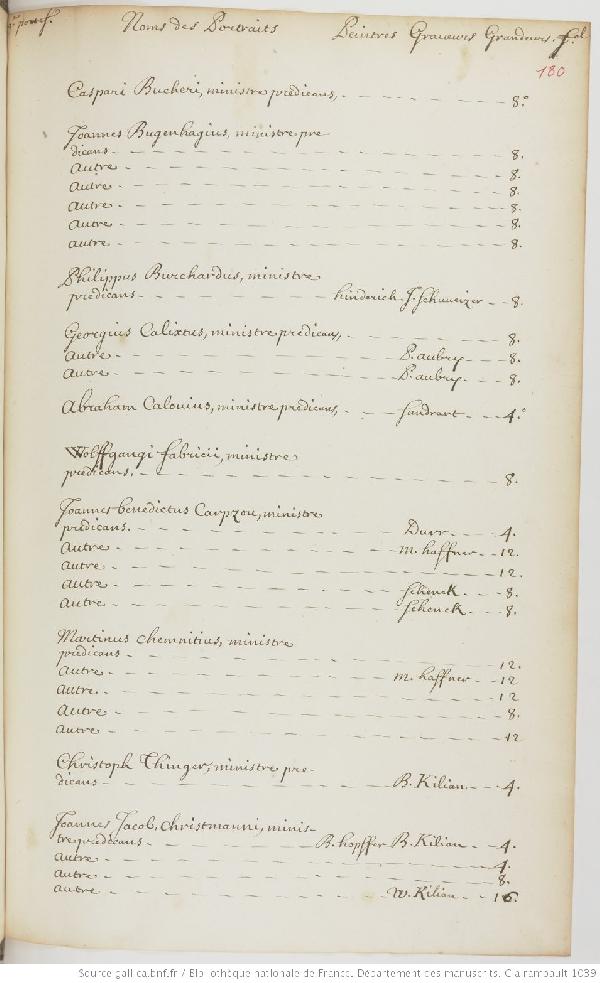 portef. Noms des Portraits Peintres Graveurs Grandeurs. fol.
180
Caspari Bucheri, ministre predicans, 8.°
Joannes Bugenhagius, ministre pre-
dicans 8.
Autre 8.
autre 8.
autre 8.
autre 8.
autre 8.
Philippus Burchardus, ministre
predicans hinderich J. Schweizer 8.
Georgius Calixtus, ministre predicans, 8.
autre P. aubry 8.
autre P. aubry. 8.
Abraham Calovius, ministre predicans, Sandrart 4.°
Wolffgangi fabricii, ministre
predicans. 8.
Joannes benedictus Carpzou, ministre
predicans. Durr 4.
autre m. haffner 12.
autre 12.
autre Schenck 8.
autre Schenck 8.
Martinus chemnitius, ministre
predicans 12.
autre m. haffner 12
autre. 12
autre 8.
autre 12
Christoph Thinger, ministre pre-
dicans B. Kilian. 4.
Joannes Jacob, christmanni, minis-
tre predicans B. hopffer B. Kilian 4.
autre 4.
autre 8.
autre W. Kilian 16.
Source gallica.bnf.fr / Bibliothèque nationale de France. Département des manuscrits. Clairambault 1039